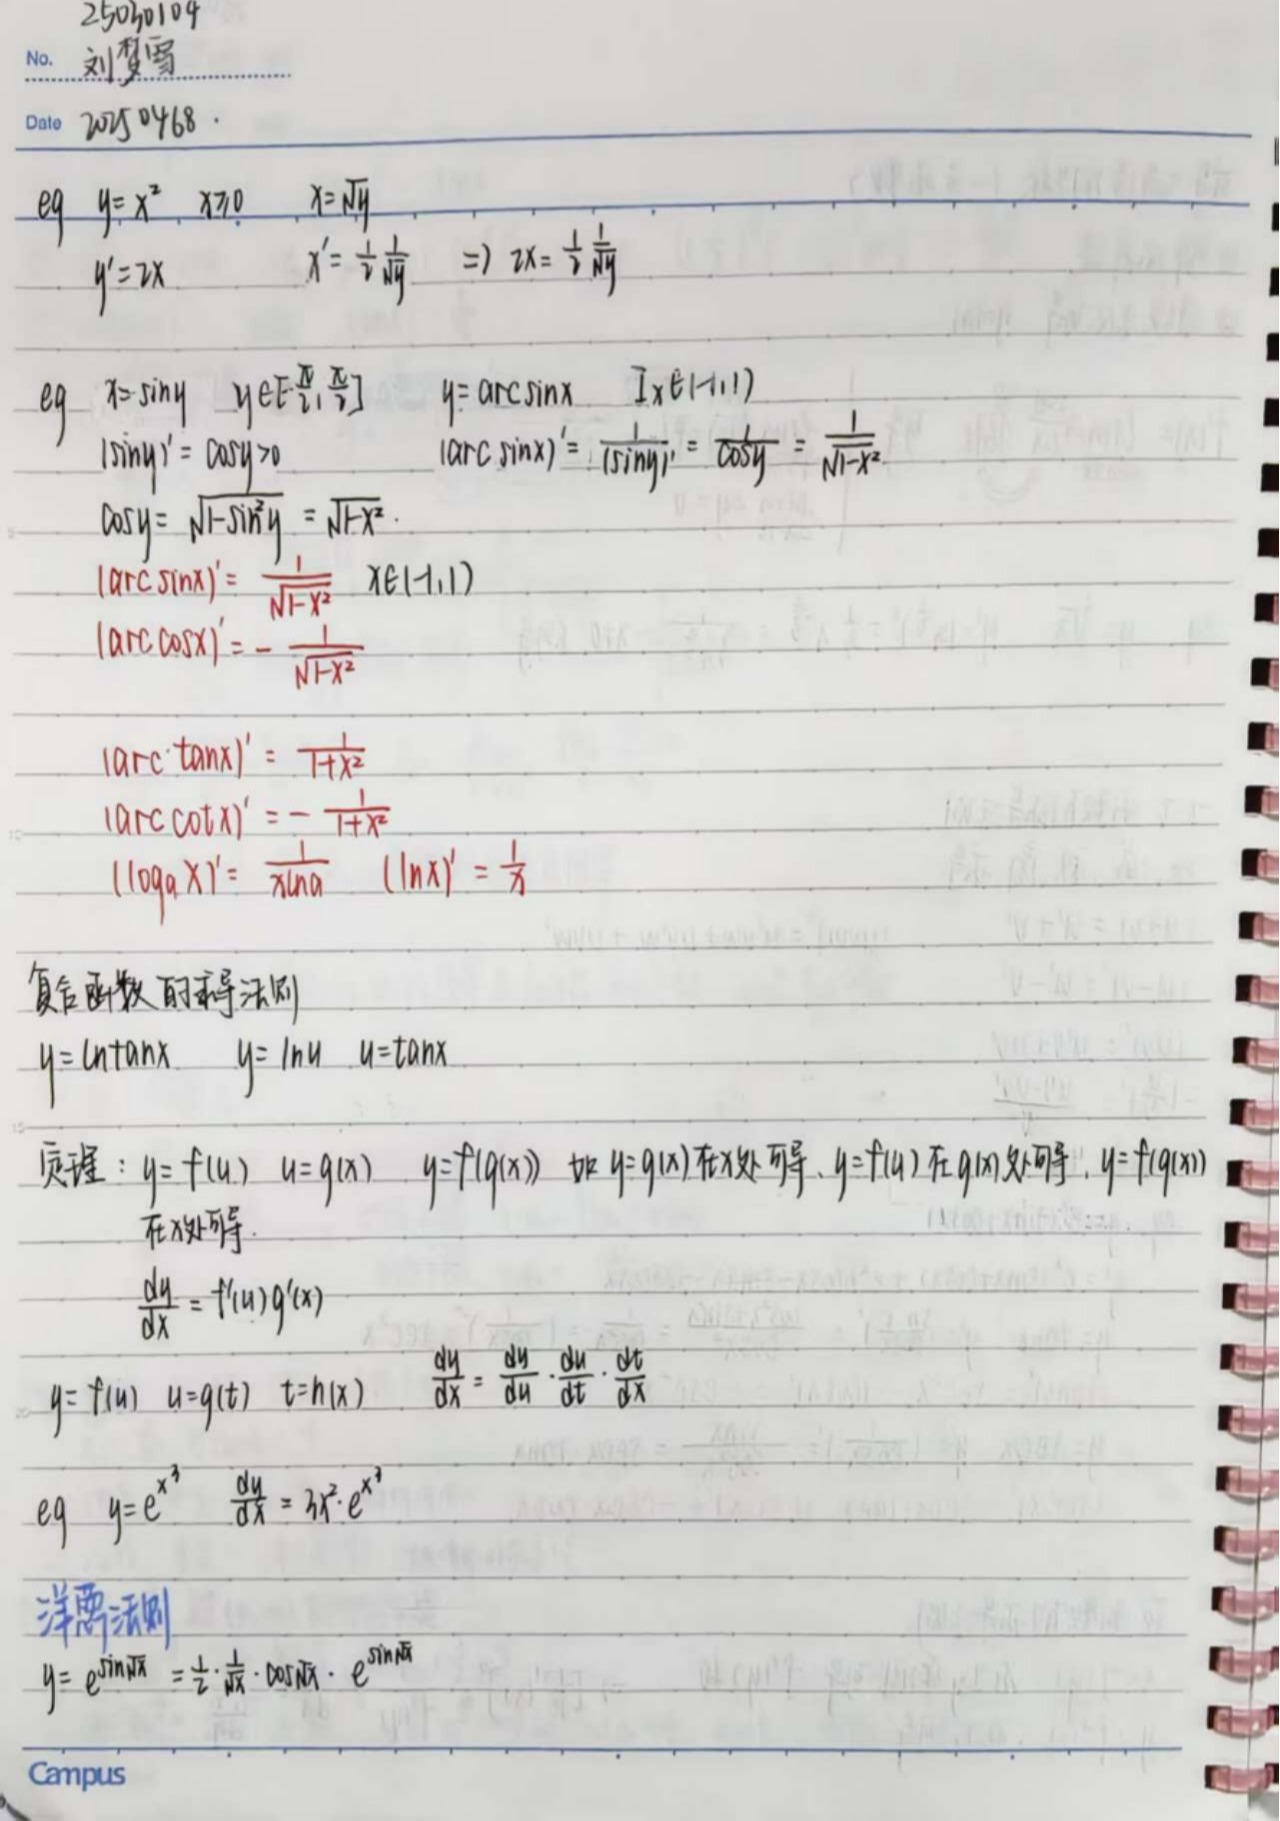 25030104
No. 刘梦雪
Date 20250468.
eg y=x² x≥0 x=√y
y'=2x x'=1/2 1/√y => 2x=1/2 1/√y
eg x=siny y∈[-π/2,π/2] y=arcsinx Ix∈(-1,1)
(siny)'=cosy>0 (arcsinx)'=1/(siny)'=1/cosy=1/√1-x²
cosy=√1-sin²y=√1-x².
(arcsinx)'=1/√1-x² x∈(-1,1)
(arccosx)'=-1/√1-x²
(arc·tanx)'=1/1+x²
(arccotx)'=-1/1+x²
(logₐx)'=1/xlna (lnx)'=1/x
复合函数的求导法则
y=lntanx y=lnu u=tanx
定理:y=f(u) u=g(x) y=f(g(x)) 如y=g(x)在x处可导、y=f(u)在g(x)处可导,y=f(g(x))
在x处可导.
dy/dx=f'(u)g'(x)
y=f(u) u=g(t) t=h(x) dy/dx=dy/du·du/dt·dt/dx
eg y=e^x³ dy/dx=3x²·e^x³
洋葱法则
y=e^sin√x=1/2·1/√x·cos√x·e^sin√x
Campus